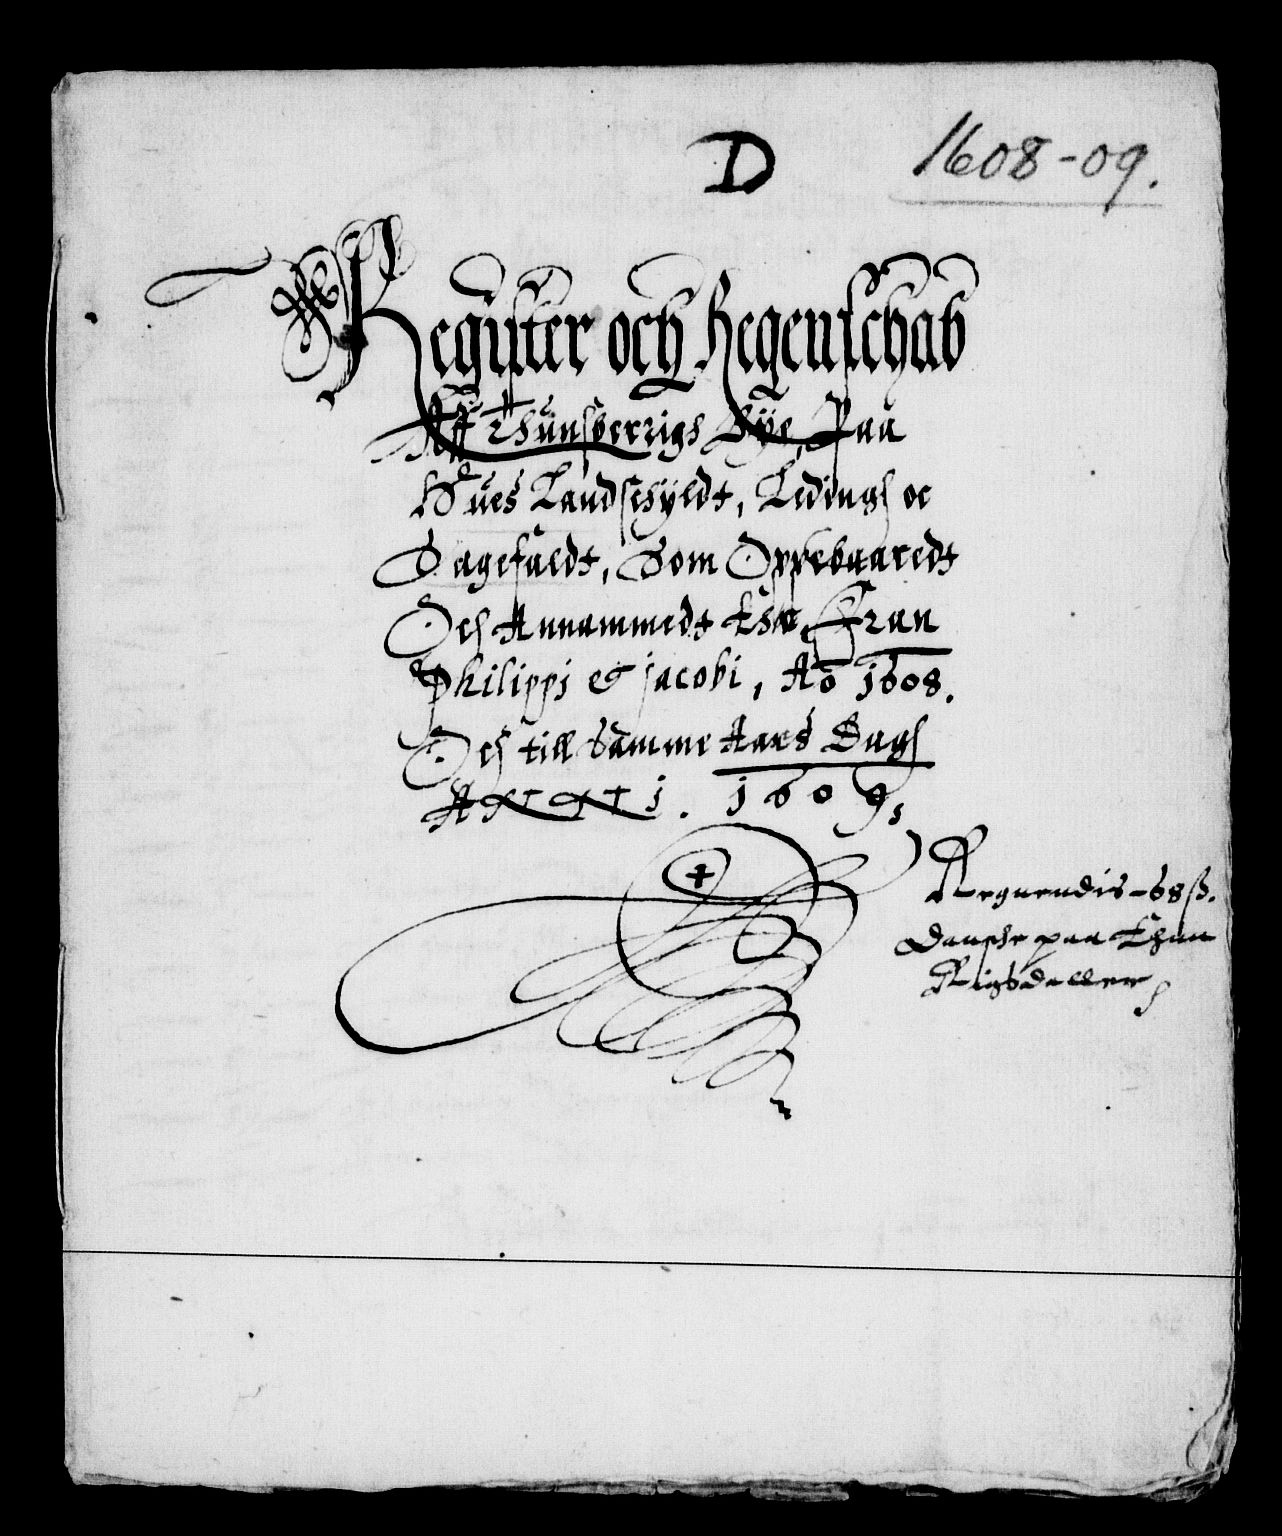 D
1608-09.
Register och Regenschab
Aff Thünsberrigs Bÿe, Paa
Hües Landschÿldt, Ledings oc
Sagefaldt, Som Oppebaaredt
Och Annammedt Ehr, Fran
Philippi et jacobi, Ao 1608.
Och till Samme Aars Dags
1609.
Regnendis 68 ß.
Danshe paa Ehnn
Rigsdaller